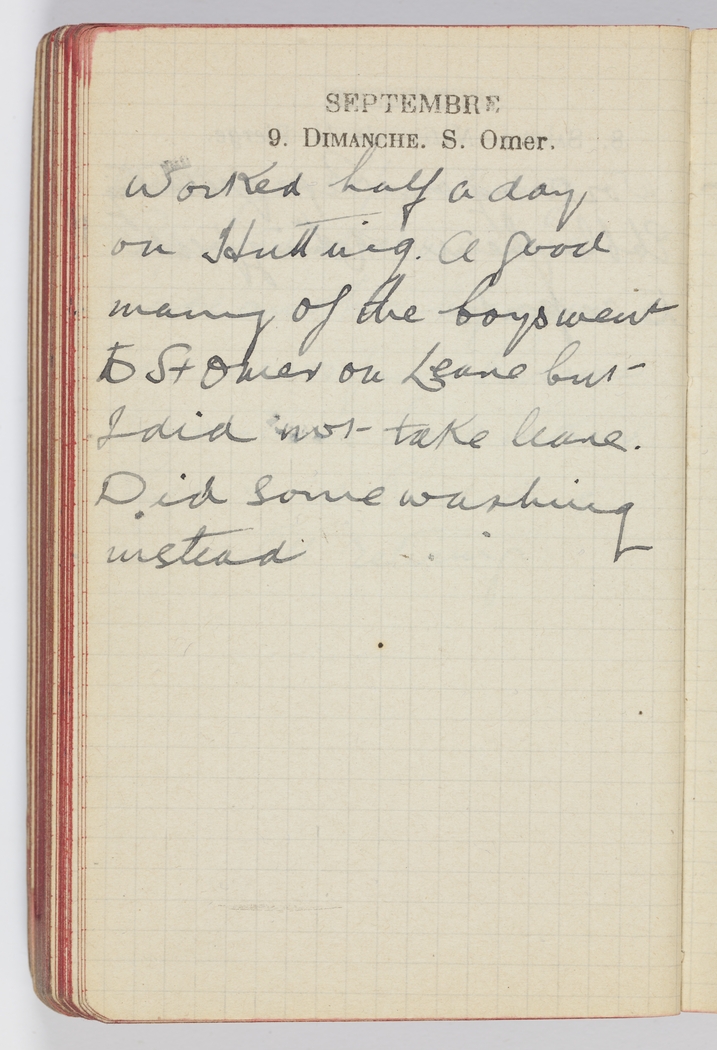 SEPTEMBRE
9. DIMANCHE. S. Omer.
Worked half a day
on Hutting. A good
many of the boys went
to St Omer on Leave but
I did not take leave.
Did some washing
instead